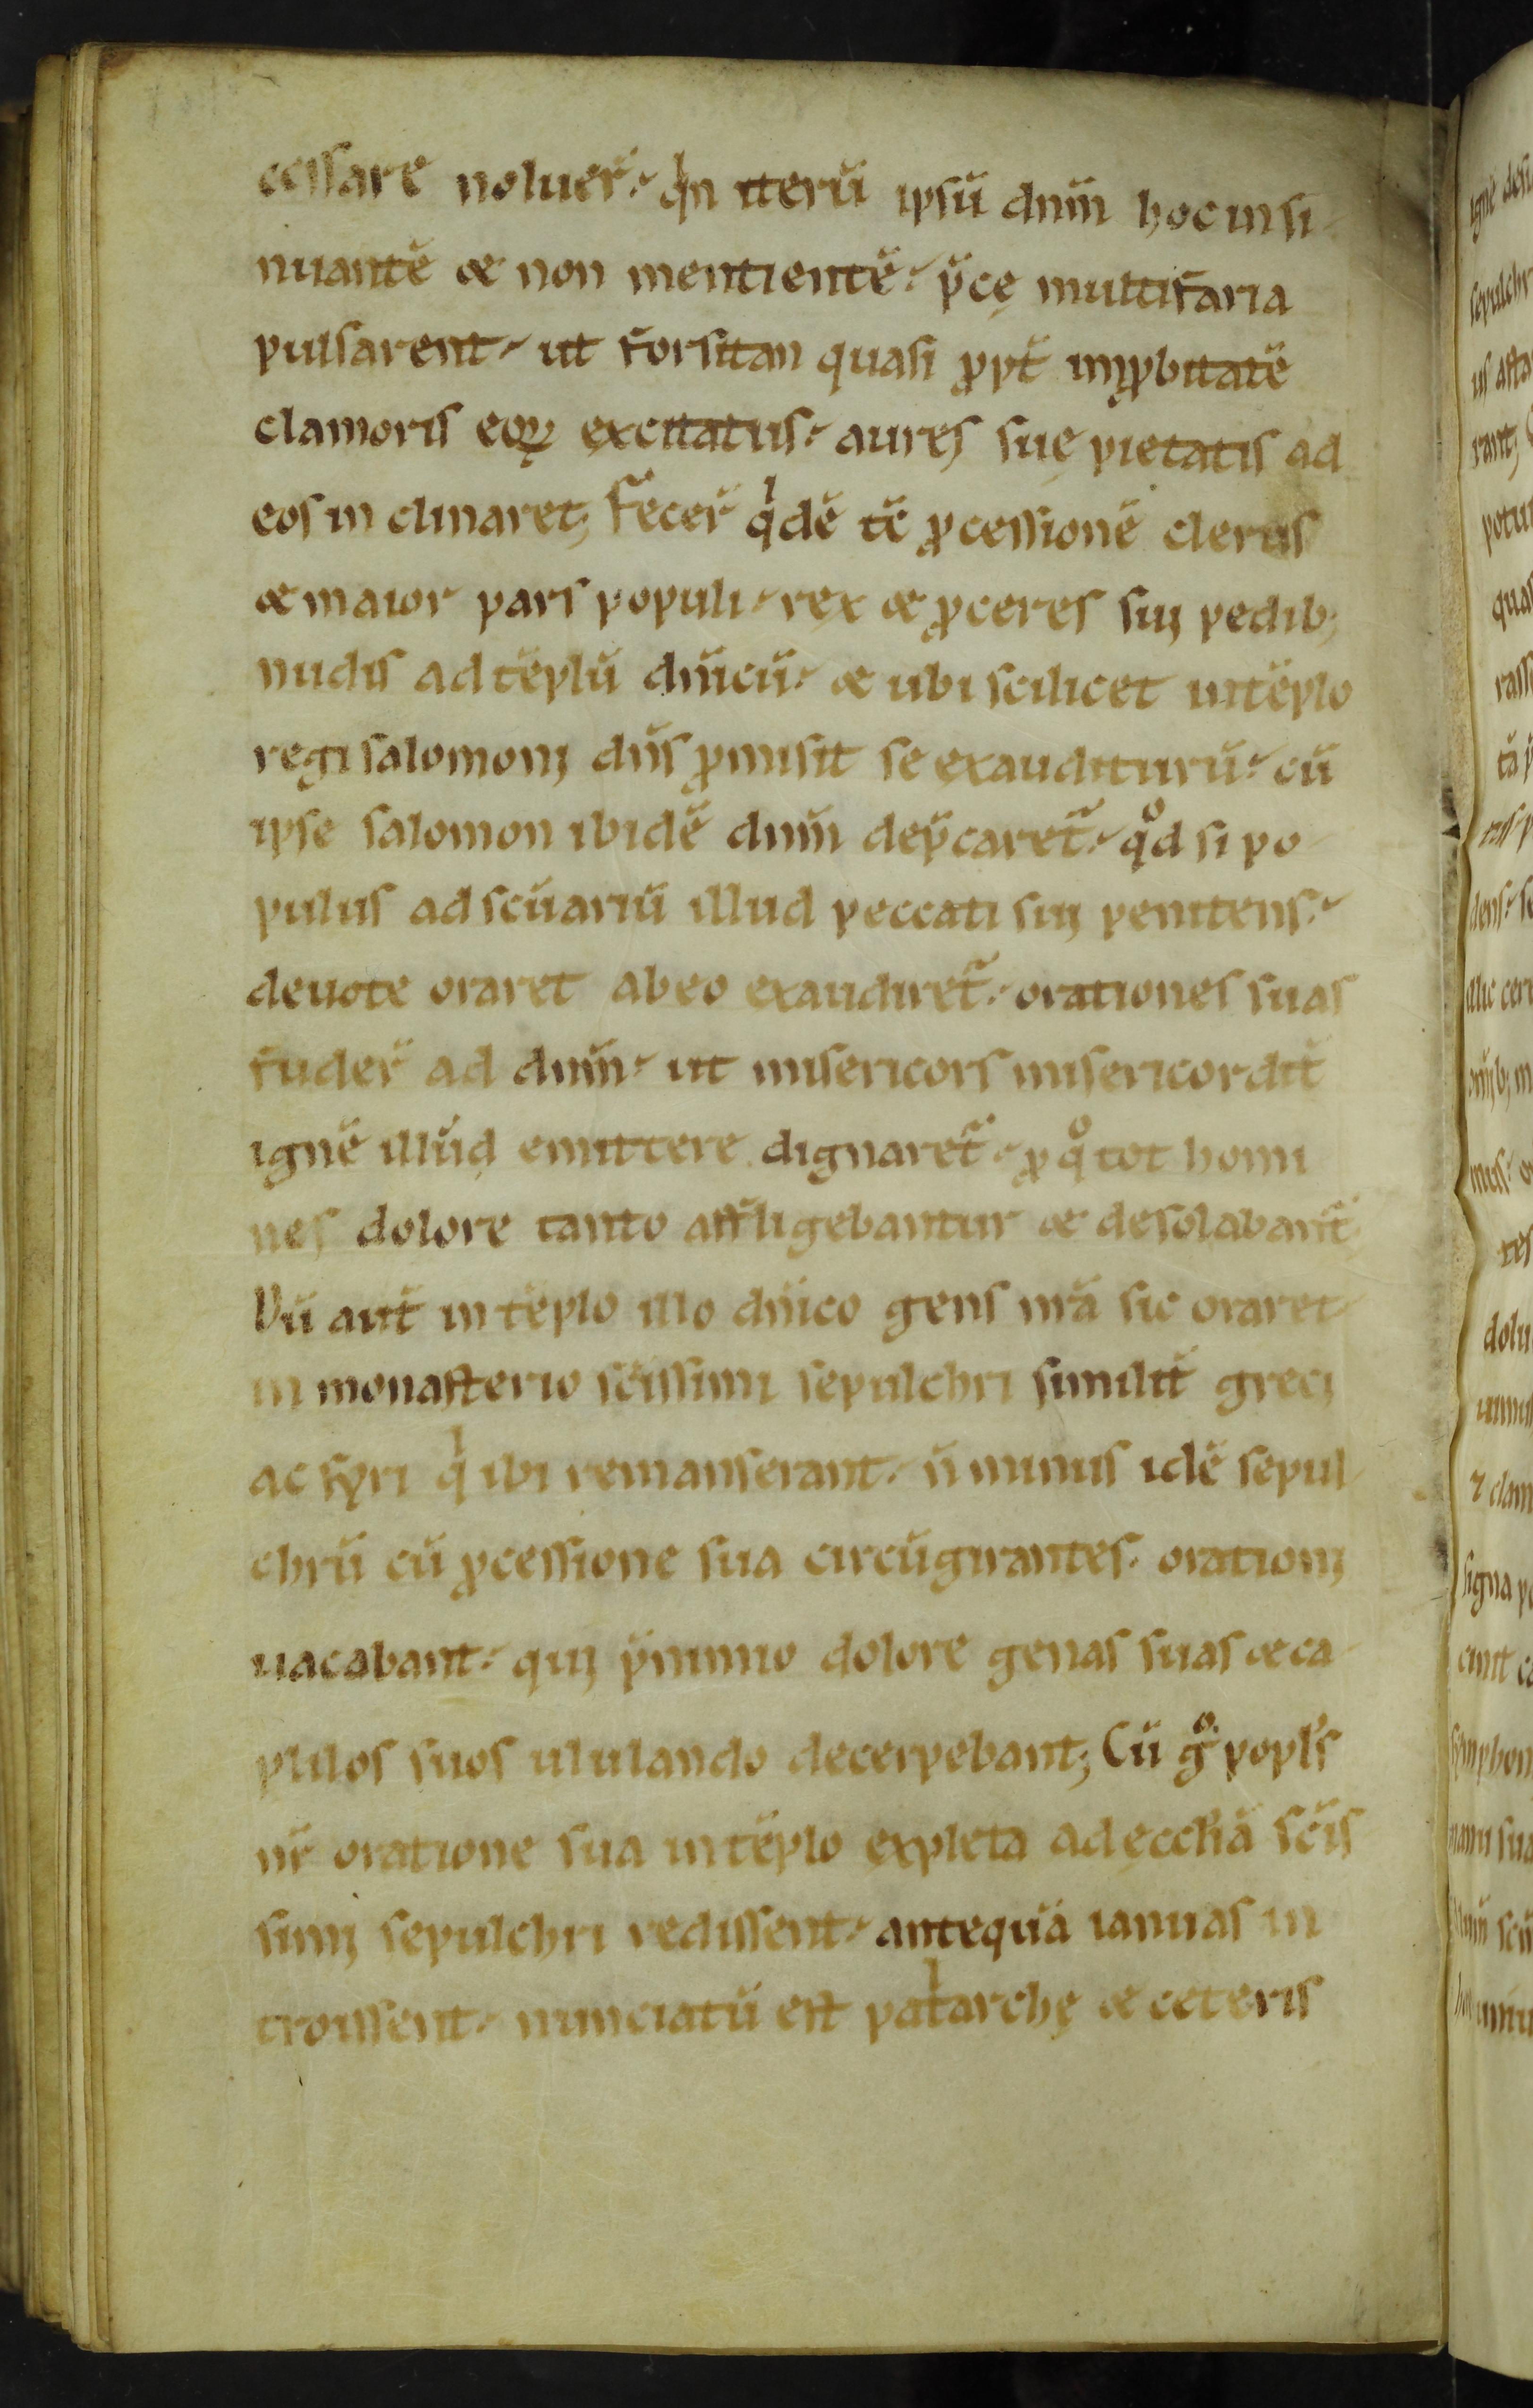 cessare noluer̄. qin iterū ipsū dn̄m hoc insi
nuantē & non mentientē. p̄cę multifaria
pulsarent. ut forsitan quasi ꝓpt̄ inꝓbitatē
clamoris eoꝝ excitatus. aures suę pietatis ad
eos inclinaret; fecer̄ qidē tc̄ ꝓcessionē clerus
& maior pars populi. rex & ꝓceres sui pedib;
nudis ad tēplū dn̄icū. & ubi scilicet in tēplo
regi salomoni dn̄s ꝓmisit se exauditurū. cū
ipse salomon ibidē dn̄m dep̄caret̄. qod si po
pulus ad sc̄uariū illud peccati sui penitens.
deuote oraret ab eo exaudiret̄. orationes suas
fuder̄ ad dn̄m. ut misericors misericordit̄
ignē illud emittere dignaret̄. ꝓ qo tot homi
nes dolore tanto affligebantur & desolabant̄
Dū aut̄ in tēplo illo dn̄ico gens nr̄a sic oraret
in monasterio sc̄issimi sepulchri similit̄ greci
ac syri qi ibi remanserant. n̄ minus idē sepul
chrū cū ꝓcessione sua circūgirantes. orationi
uacabant. qui p̄nimio dolore genas suas & ca
pillos suos ululando decerpebant; Cū go popl's
nr̄ oratione sua in tēplo expleta ad ęccl'iā sc̄is
simi sepulchri redissent. antequā ianuas in
troissent. nunciatū est patiarchę & ceteris